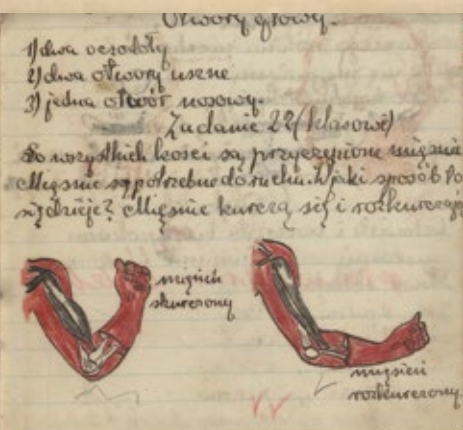 Otwory głowy.
1) dwa oczodoły
2) dwa otwory uszne
3) jedna otwór nosowy.
Zadanie 22 (klasowe)
Do wszystkich kości są przyczepione mięśnie
Mięśnie są potrzebne do ruchu. W jaki sposób to
się dzieje? Mięśnie kurczą się i rozkurczają
mięsień
skurczony
mięsień
rozkurczony.